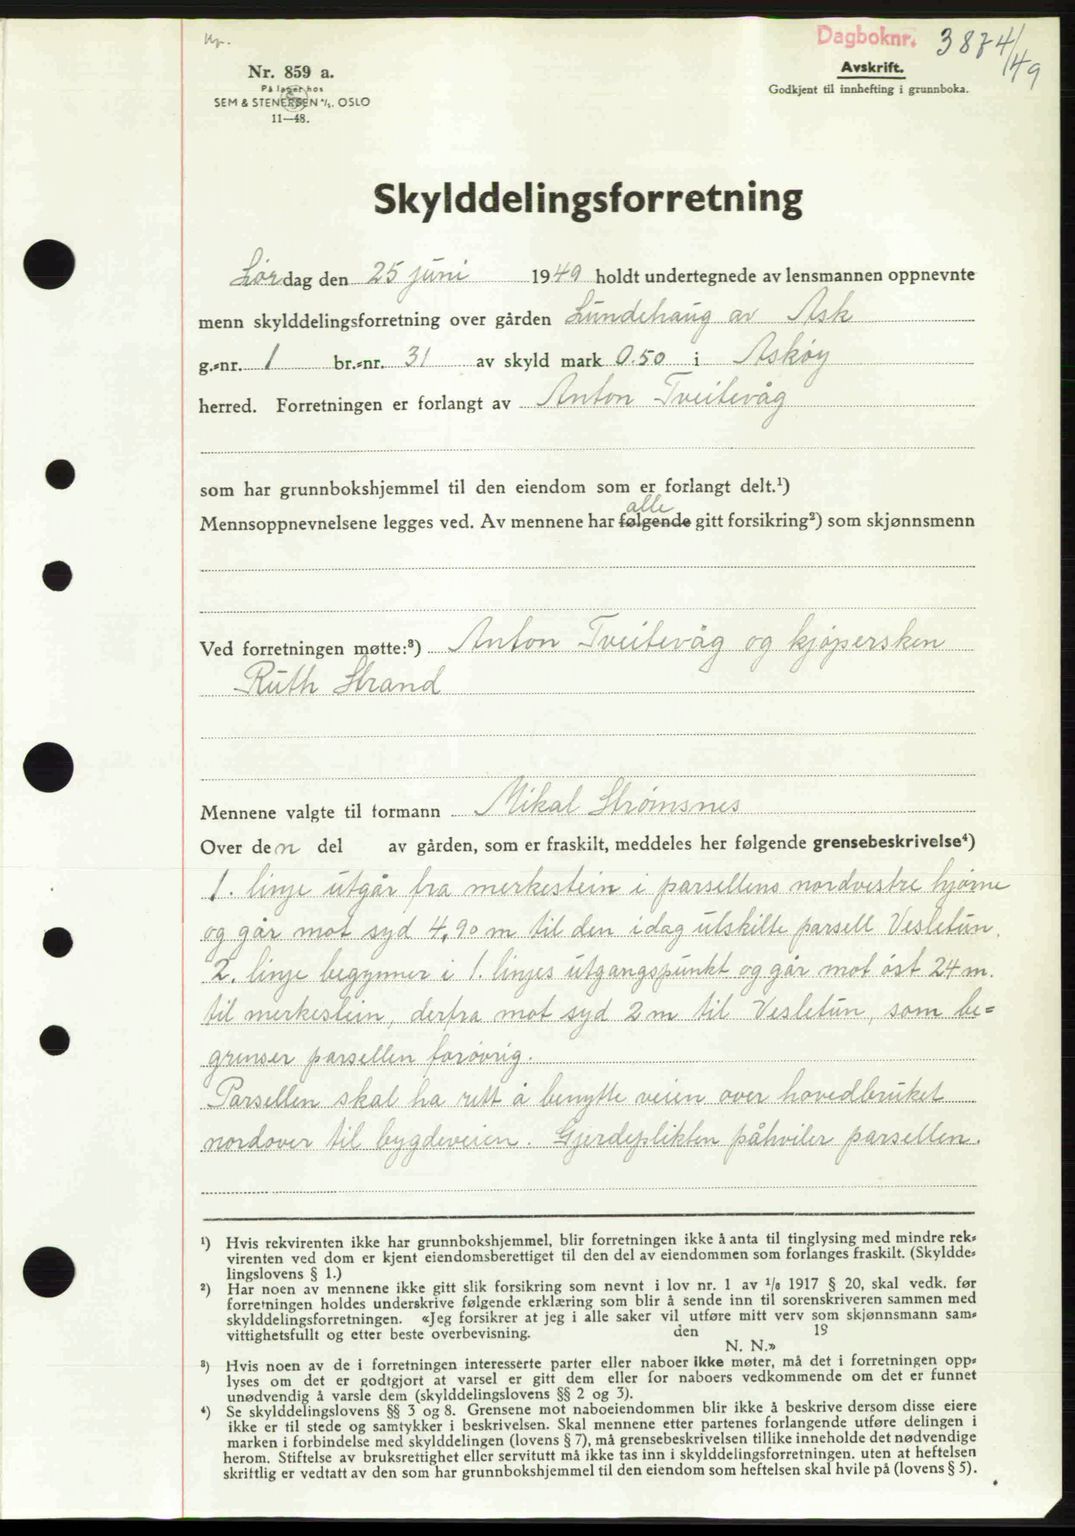 Kp.
Dagboknr. 3874/49
Nr. 859 a.
På lager hos
SEM & STENERSEN A/S. OSLO
11—48.
Avskrift.
Godkjent til innhefting i grunnboka.
Skylddelingsforretning
Lørdag den 25 juni 1949 holdt undertegnede av lensmannen oppnevnte
menn skylddelingsforretning over gården Lundehaug av Ask
g.-nr. 1 br.-nr. 31 av skyld mark 0.50 i Askøy
herred. Forretningen er forlangt av Anton Tveitevåg
som har grunnbokshjemmel til den eiendom som er forlangt delt.¹)
alle
Mennsoppnevnelsene legges ved. Av mennene har følgende gitt forsikring²) som skjønnsmenn
Ved forretningen møtte:³) Anton Tveitevåg og kjøpersken
Ruth Strand
Mennene valgte til formann Mikal Strømsnes
Over den del av gården, som er fraskilt, meddeles her følgende grensebeskrivelse⁴)
1. linje utgår fra merkestein i parsellens nordvestre hjørne
og går mot syd 4,90 m til den idag utskilte parsell Vesletun.
2. linje begynner i 1. linjes utgangspunkt og går mot øst 24 m.
til merkestein, derfra mot syd 2 m til Vesletun, som be=
grenser parsellen forøvrig.
Parsellen skal ha rett å benytte veien over hovedbruket
nordover til bygdeveien. Gjerdeplikten påhviler parsellen.
¹) Hvis rekvirenten ikke har grunnbokshjemmel, blir forretningen ikke å anta til tinglysing med mindre rek-
virenten ved dom er kjent eiendomsberettiget til den del av eiendommen som forlanges fraskilt. (Skyldde-
lingslovens § 1.)
²) Har noen av mennene ikke gitt slik forsikring som nevnt i lov nr. 1 av 1/8 1917 § 20, skal vedk. før
forretningen holdes underskrive følgende erklæring som blir å sende inn til sorenskriveren sammen med
skylddelingsforretningen. «Jeg forsikrer at jeg i alle saker vil utføre mitt verv som skjønnsmann sam-
vittighetsfullt og etter beste overbevisning. den 19
N. N.»
³) Hvis noen av de i forretningen interesserte parter eller naboer ikke møter, må det i forretningen opp-
lyses om det er godtgjort at varsel er gitt dem eller for naboers vedkommende om det er funnet
unødvendig å varsle dem (skylddelingslovens §§ 2 og 3).
⁴) Se skylddelingslovens §§ 3 og 8. Grensene mot naboeiendommen blir ikke å beskrive dersom disse eiere
ikke er til stede og samtykker i beskrivelsen. Skal mennene etter partenes forlangende utføre delingen i
marken i forbindelse med skylddelingen (lovens § 7), må grensebeskrivelsen tillike inneholde det nødvendige
herom. Stiftelse av bruksrettighet eller servitutt må ikke tas inn i skylddelingsforretningen, uten at heftelsen
skriftlig er vedtatt av den som har grunnbokshjemmel til den eiendom som heftelsen skal hvile på (lovens § 5).